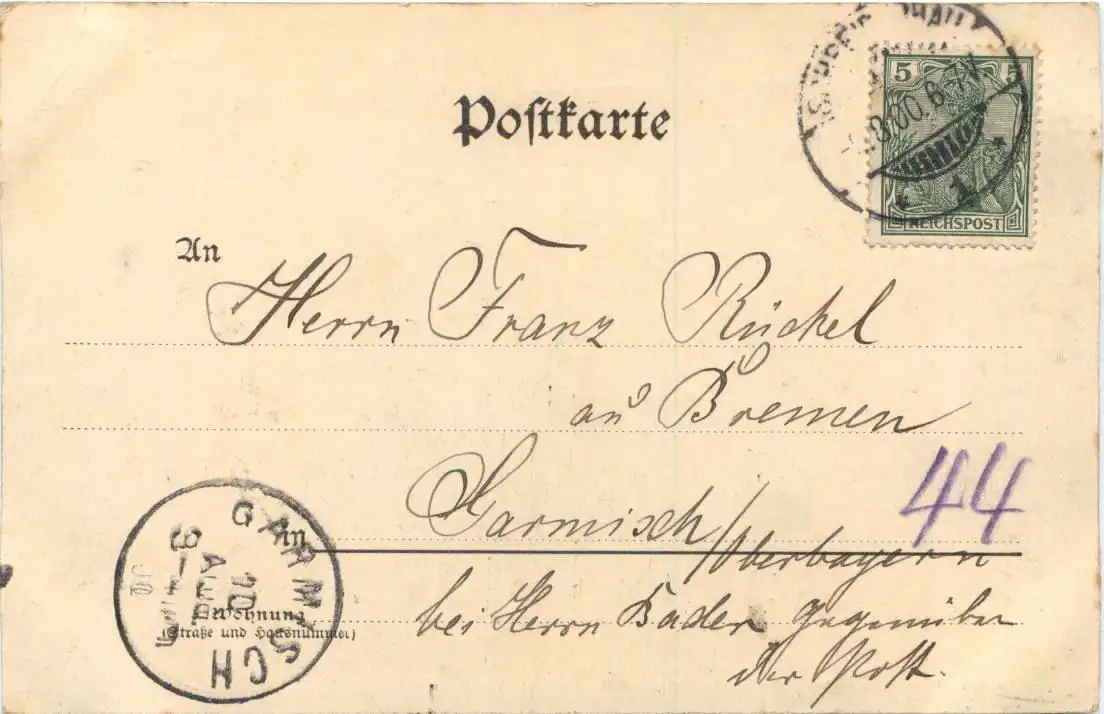 Postkarte
5 5
8.00.6-7V.
* 1 *
REICHSPOST
An
Herrn Franz Rückel
aus Bremen
in Garmisch/Oberbayern
44
Wohnung
(Straße und Hausnummer)
bei Herrn Bader gegenüber
der Post.
GARMISCH
10
AUG.
00